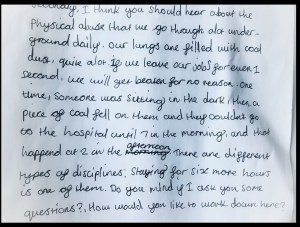 Secondly, I think you should hear about the
physical abuse that we go through alot under-
ground daily. Our lungs are filled with coal
dust, quite alot if we leave our jobs for even 1
second, we will get beaten for no reason. One
time, someone was sitting in the dark, then a
piece of coal fell on them and they couldnt go
to the hospital until 7 in the morning, and that
happend at 2 in the afternoon. There are different
types of disciplines, staying for six more hours
is one of them. Do you mind if I ask you some
questions?, How would you like to work down here?